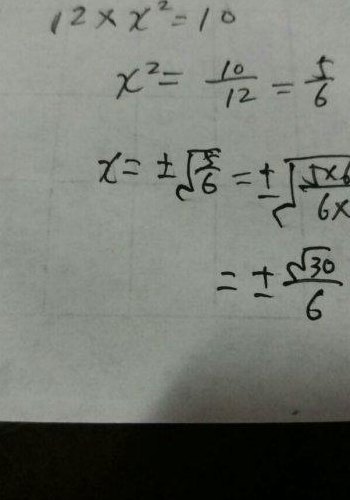 12 × x² = 10
x² = 10/12 = 5/6
x = ±√(5/6) = ±√(5×6/6×
= ±√30/6